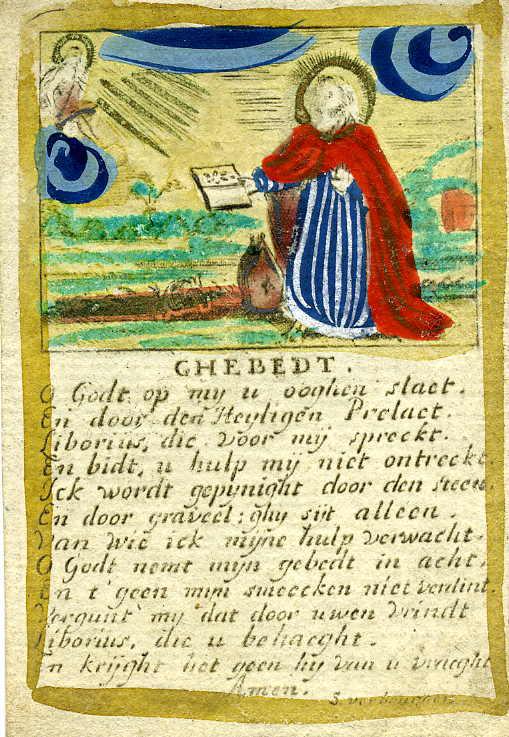 GHEBEDT.
O Godt op my u ooghen slaet.
En door den Heyligen Prelaet.
Liborius, die voor mij spreckt.
En bidt, u hulp mij niet ontreckt.
Ick wordt gepynight door den steen.
En door graveel: ghy sijt alleen.
Van wie ick mijne hulp verwacht.
O Godt nemt mijn gebedt in acht.
En t'geen mijn smeecken niet verdint.
Vergunt my dat door uwen vrindt
Liborius, die u behaeght.
En krijght het geen hij van u vraeght
Amen.